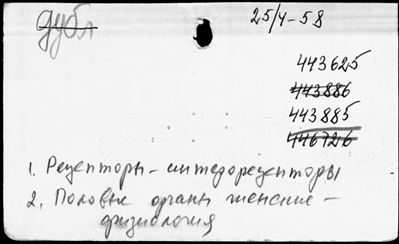 дубл
25/4-58
443625
443886
443885
446726
1. Рецепторы - интерорецепторы
2. Половые органы женские -
физиология